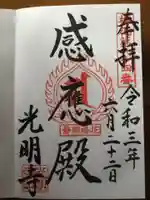 奉拝
令和三年
六月二十二日
感應殿
光明寺